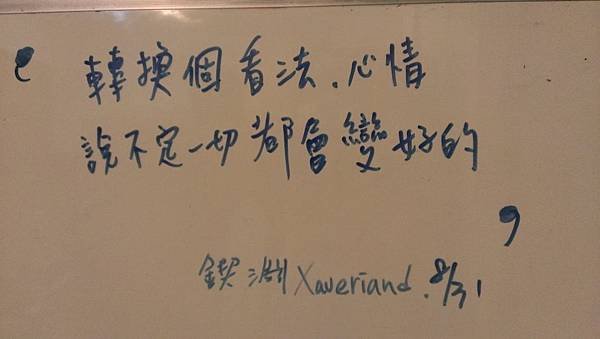 轉換個看法.心情
說不定一切都會變好的
鍥淵 Xaveriand. 8/31